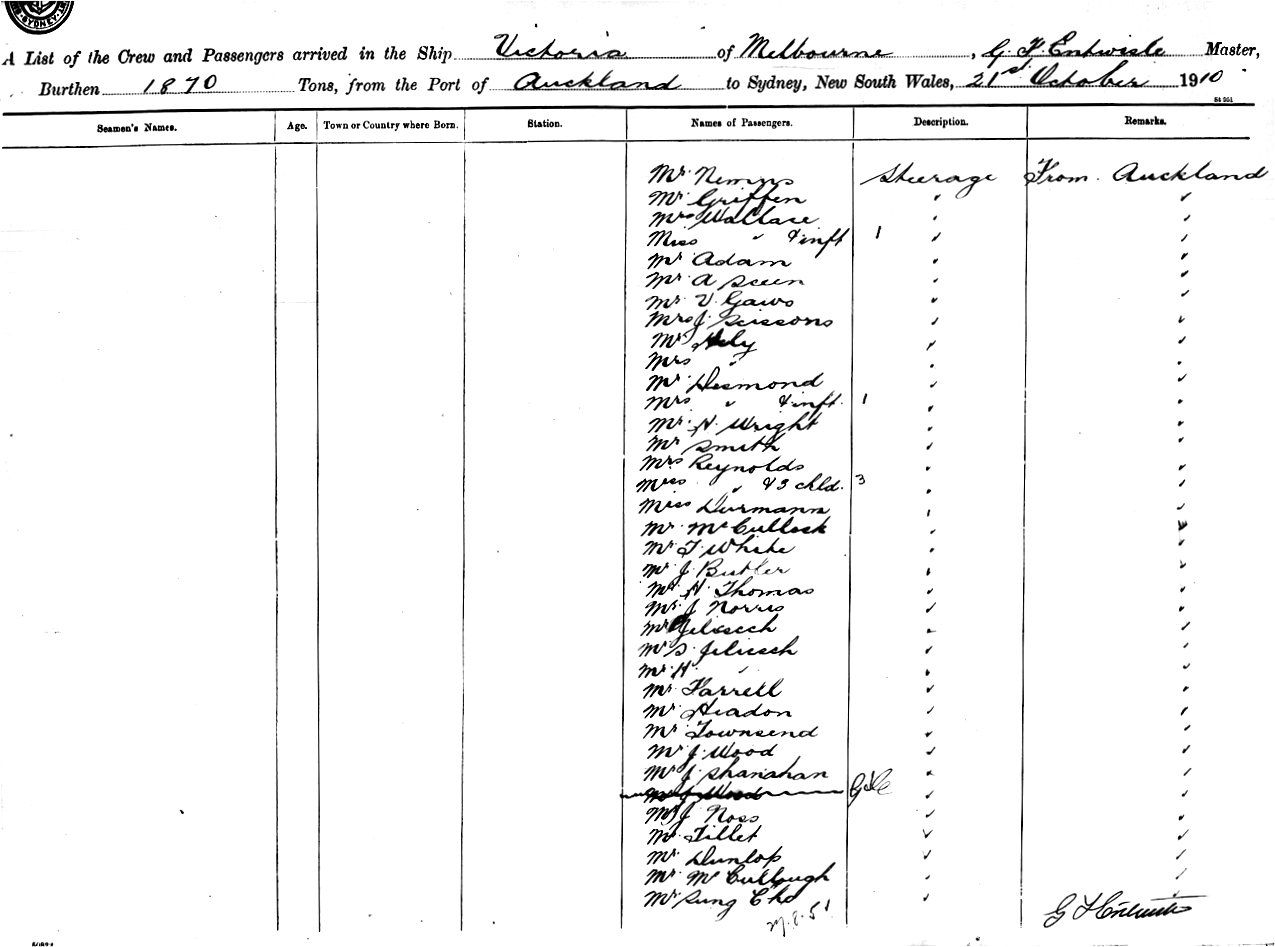 SYDNEY
A List of the Crew and Passengers arrived in the Ship Victoria of Melbourne, G. F. Entwisle Master,
Burthen 1870 Tons, from the Port of Auckland to Sydney, New South Wales, 21st October 1910
St 351
Seamen's Names. Age. Town or Country where Born. Station. Names of Passengers. Description. Remarks.
Mr Steerage From Auckland
Mr Griffen "
Mrs Wallace "
Miss " & inft 1 "
Mr Adam "
Mr A "
Mr V. Gaws "
Mrs J. Scissons "
Mr Hely "
Mrs " "
Mr Desmond "
Mrs " & inft. 1 "
Mr H. Wright "
Mr Smith "
Mrs Reynolds "
Miss " & 3 chld. 3 "
Miss Durmann "
Mr McCullock "
Mr T. White "
Mr J. Butler "
Mr H. Thomas "
Mr J Norris "
Mr Jeliesech "
Mr S. Jeliesch "
Mr H. " "
Mr Farrell "
Mr Headon "
Mr Townsend "
Mr J. Wood "
Mr J. Shanahan "
Mr J Wood "
Mr J Ross "
Mr Tillet "
Mr Dunlop "
Mr McCullough "
Mr Sung Cho "
27.8.51
G F Entwisle